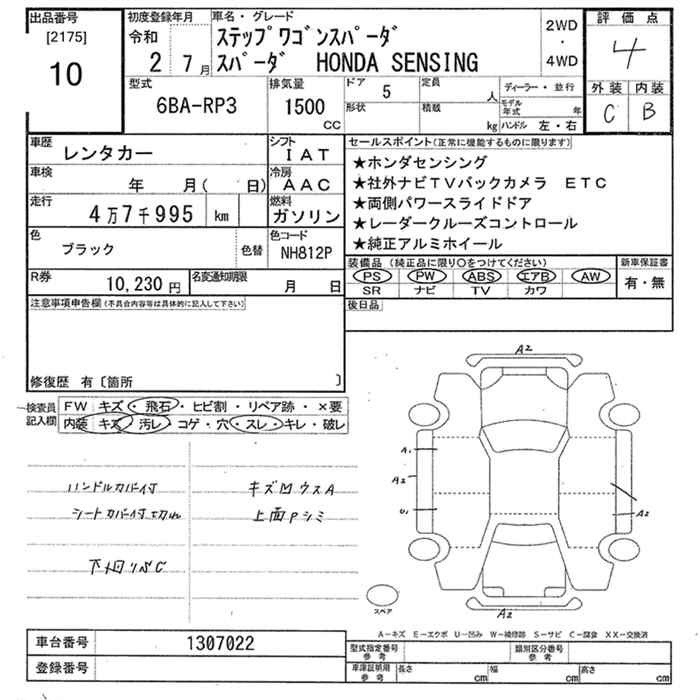 出品番号
[2175]
10
初度登録年月
令和
2 7月
車名・グレード
ステップワゴンスパーダ
スパーダ HONDA SENSING
2WD
・
4WD
評価点
4
外装 内装
C B
型式
6BA-RP3
排気量
1500
CC
ドア 5
形状
定員 人
積載 kg
ディーラー・並行
モデル年式 年
ハンドル 左・右
車歴 レンタカー
シフト IAT
車検 年 月( 日)
冷房 AAC
走行 4万7千995 km
燃料 ガソリン
色 ブラック
色替
色コード NH812P
R券 10,230円
名変通知期限 月 日
セールスポイント(正常に機能するものに限ります)
★ホンダセンシング
★社外ナビTVバックカメラ ETC
★両側パワースライドドア
★レーダークルーズコントロール
★純正アルミホイール
装備品(純正品に限り〇をつけてください)
PS PW ABS エアB AW
SR ナビ TV カワ
新車保証書
有・無
後日品
注意事項申告欄(不具合内容等は具体的に記入して下さい)
修復歴 有〔箇所 〕
検査員記入欄
FW キズ・飛石・ヒビ割・リペア跡・×要
内装 キズ・汚レ・コゲ・穴・スレ・キレ・破レ
ハンドルカバー付
シートカバー付 切れ
下廻りS C
キズ凹ウスA
上面Pシミ
A2
A1
A2
U1
A2
A2
スペア
A-キズ E-エクボ U-凹み W-補修跡 S-サビ C-腐食 XX-交換済
車台番号 1307022
登録番号
型式指定番号 参考
類別区分番号 参考
車庫証明用 参考
長さ cm
幅 cm
高さ cm